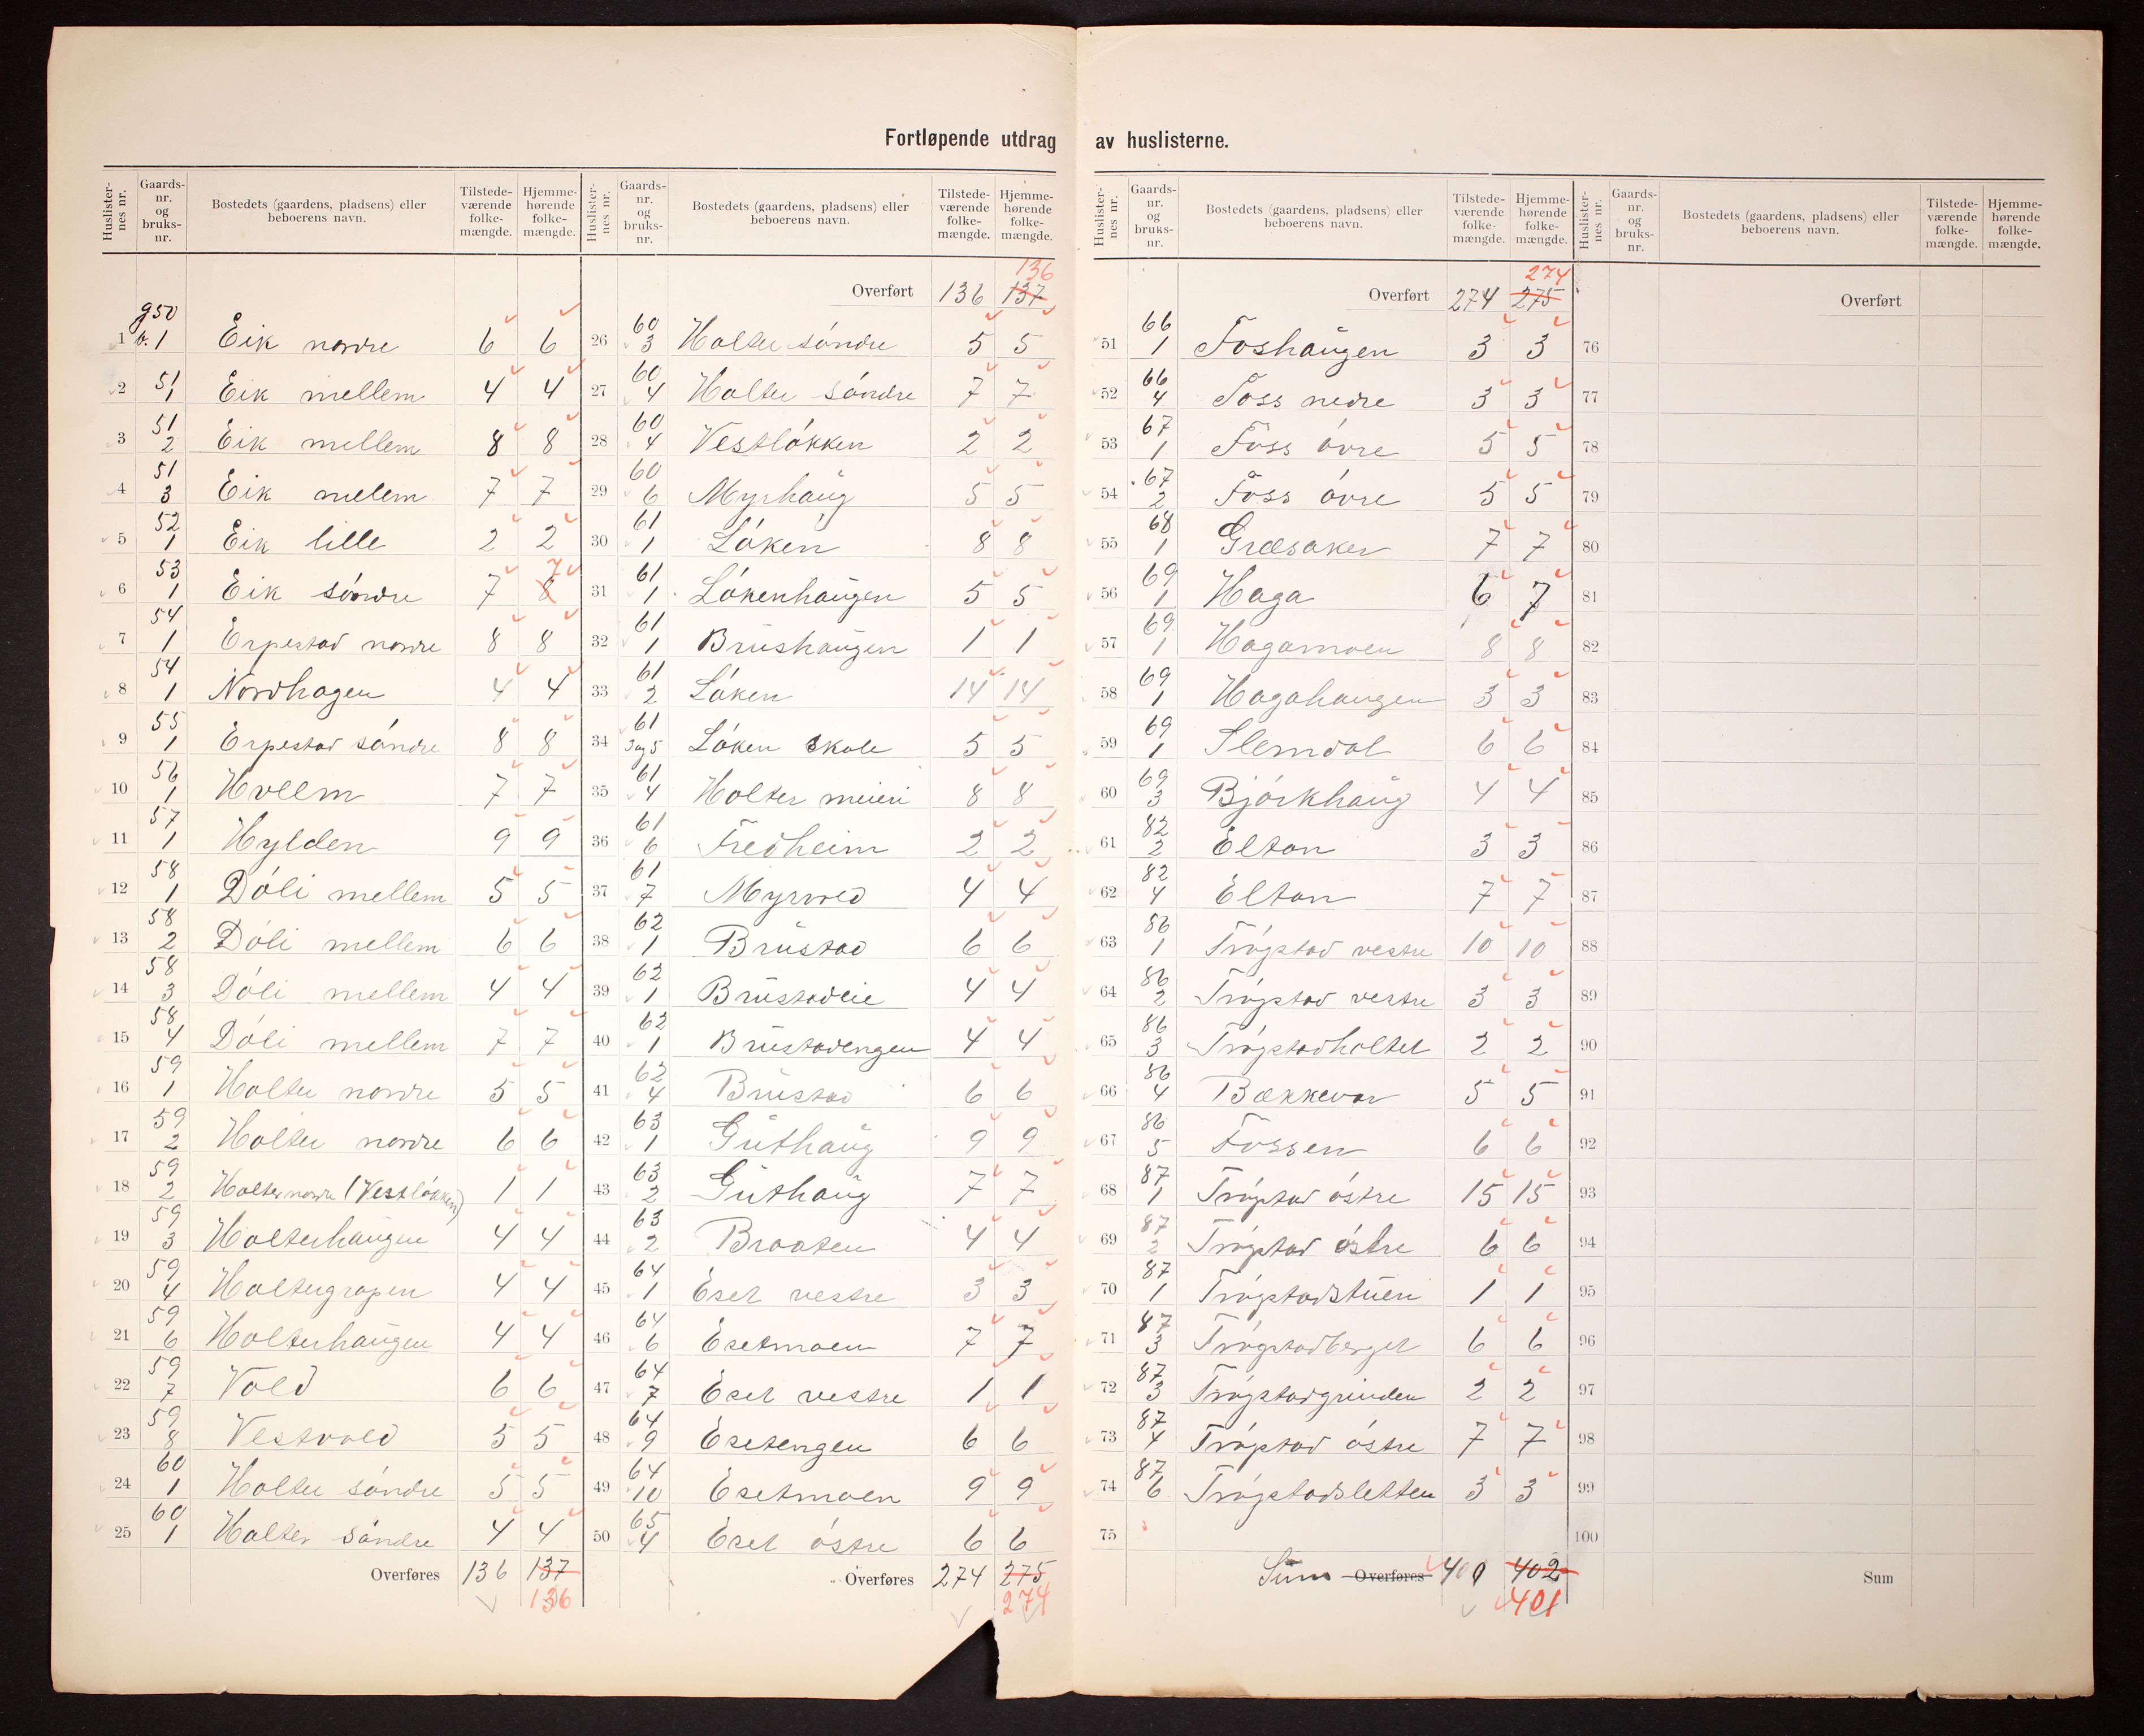 Fortløpende utdrag av huslisterne.
Huslister-nes nr. Gaards-nr. og bruks-nr. Bostedets (gaardens, pladsens) eller beboerens navn. Tilstede-værende folke-mængde. Hjemme-hørende folke-mængde.
g 50
1 b. 1 Eik nordre 6 6
2 51 1 Eik mellem 4 4
3 51 2 Eik mellem 8 8
4 51 3 Eik melem 7 7
5 52 1 Eik lille 2 2
6 53 1 Eik söndre 7 8 7
7 54 1 Erpestad nordre 8 8
8 54 1 Nordhagen 4 4
9 55 1 Erpestad söndre 8 8
10 56 1 Hvllm 7 7
11 57 1 Hylden 9 9
12 58 1 Döli mellem 5 5
13 58 2 Döli mellem 6 6
14 58 3 Döli mellem 4 4
15 58 4 Döli mellem 7 7
16 59 1 Holter nordre 5 5
17 59 2 Holter nordre 6 6
18 59 2 Holter nordre (Vestlökken) 1 1
19 59 3 Holterhaugen 4 4
20 59 4 Holtergropen 4 4
21 59 6 Holterhaugen 4 4
22 59 7 Vold 6 6
23 59 8 Vestvold 5 5
24 60 1 Holter söndre 5 5
25 60 1 Holter söndre 4 4
Overføres 136 137
136
Huslister-nes nr. Gaards-nr. og bruks-nr. Bostedets (gaardens, pladsens) eller beboerens navn. Tilstede-værende folke-mængde. Hjemme-hørende folke-mængde.
136
Overført 136 137
26 60 3 Holter söndre 5 5
27 60 4 Holter söndre 7 7
28 60 4 Vestlökken 2 2
29 60 6 Myrhaug 5 5
30 61 1 Löken 8 8
31 61 1 Lökenhaugen 5 5
32 61 1 Brushaugen 1 1
33 61 2 Löken 14 14
34 61 3 og 5 Löken Skole 5 5
35 61 4 Holter meieri 8 8
36 61 6 Fredheim 2 2
37 61 7 Myrvold 4 4
38 62 1 Brustad 6 6
39 62 1 Brustadeie 4 4
40 62 1 Brustadengen 4 4
41 62 4 Brustad 6 6
42 63 1 Guthaug 9 9
43 63 2 Guthaug 7 7
44 63 2 Braaten 4 4
45 64 1 Eset vestre 3 3
46 64 6 Esetmoen 7 7
47 64 7 Eset vestre 1 1
48 64 9 Esetengen 6 6
49 64 10 Esetmoen 9 9
50 65 4 Eset östre 6 6
Overføres 274 275
274
Huslister-nes nr. Gaards-nr. og bruks-nr. Bostedets (gaardens, pladsens) eller beboerens navn. Tilstede-værende folke-mængde. Hjemme-hørende folke-mængde.
274
Overført 274 275
51 66 1 Foshaugen 3 3
52 66 4 Foss nedre 3 3
53 67 1 Foss övre 5 5
54 67 2 Foss övre 5 5
55 68 1 Græsaker 7 7
56 69 1 Haga 6 7
57 69 1 Hagamoen 8 8
58 69 1 Hagahaugen 3 3
59 69 1 Slemdal 6 6
60 69 3 Björkhaug 4 4
61 82 2 Elton 3 3
62 82 4 Elton 7 7
63 86 1 Trögstad vestre 10 10
64 86 2 Trögstad vestre 3 3
65 86 3 Trögstadholtet 2 2
66 86 4 Bækkevar 5 5
67 86 5 Fossen 6 6
68 87 1 Trögstad östre 15 15
69 87 2 Trögstad östre 6 6
70 87 1 Trögstadstuen 1 1
71 87 3 Trögstadberget 6 6
72 87 3 Trögstadgrinden 2 2
73 87 4 Trögstad östre 7 7
74 87 6 Trögstadsletten 3 3
75
Sum Overføres 400 402
401
Huslister-nes nr. Gaards-nr. og bruks-nr. Bostedets (gaardens, pladsens) eller beboerens navn. Tilstede-værende folke-mængde. Hjemme-hørende folke-mængde.
Overført
76
77
78
79
80
81
82
83
84
85
86
87
88
89
90
91
92
93
94
95
96
97
98
99
100
Sum